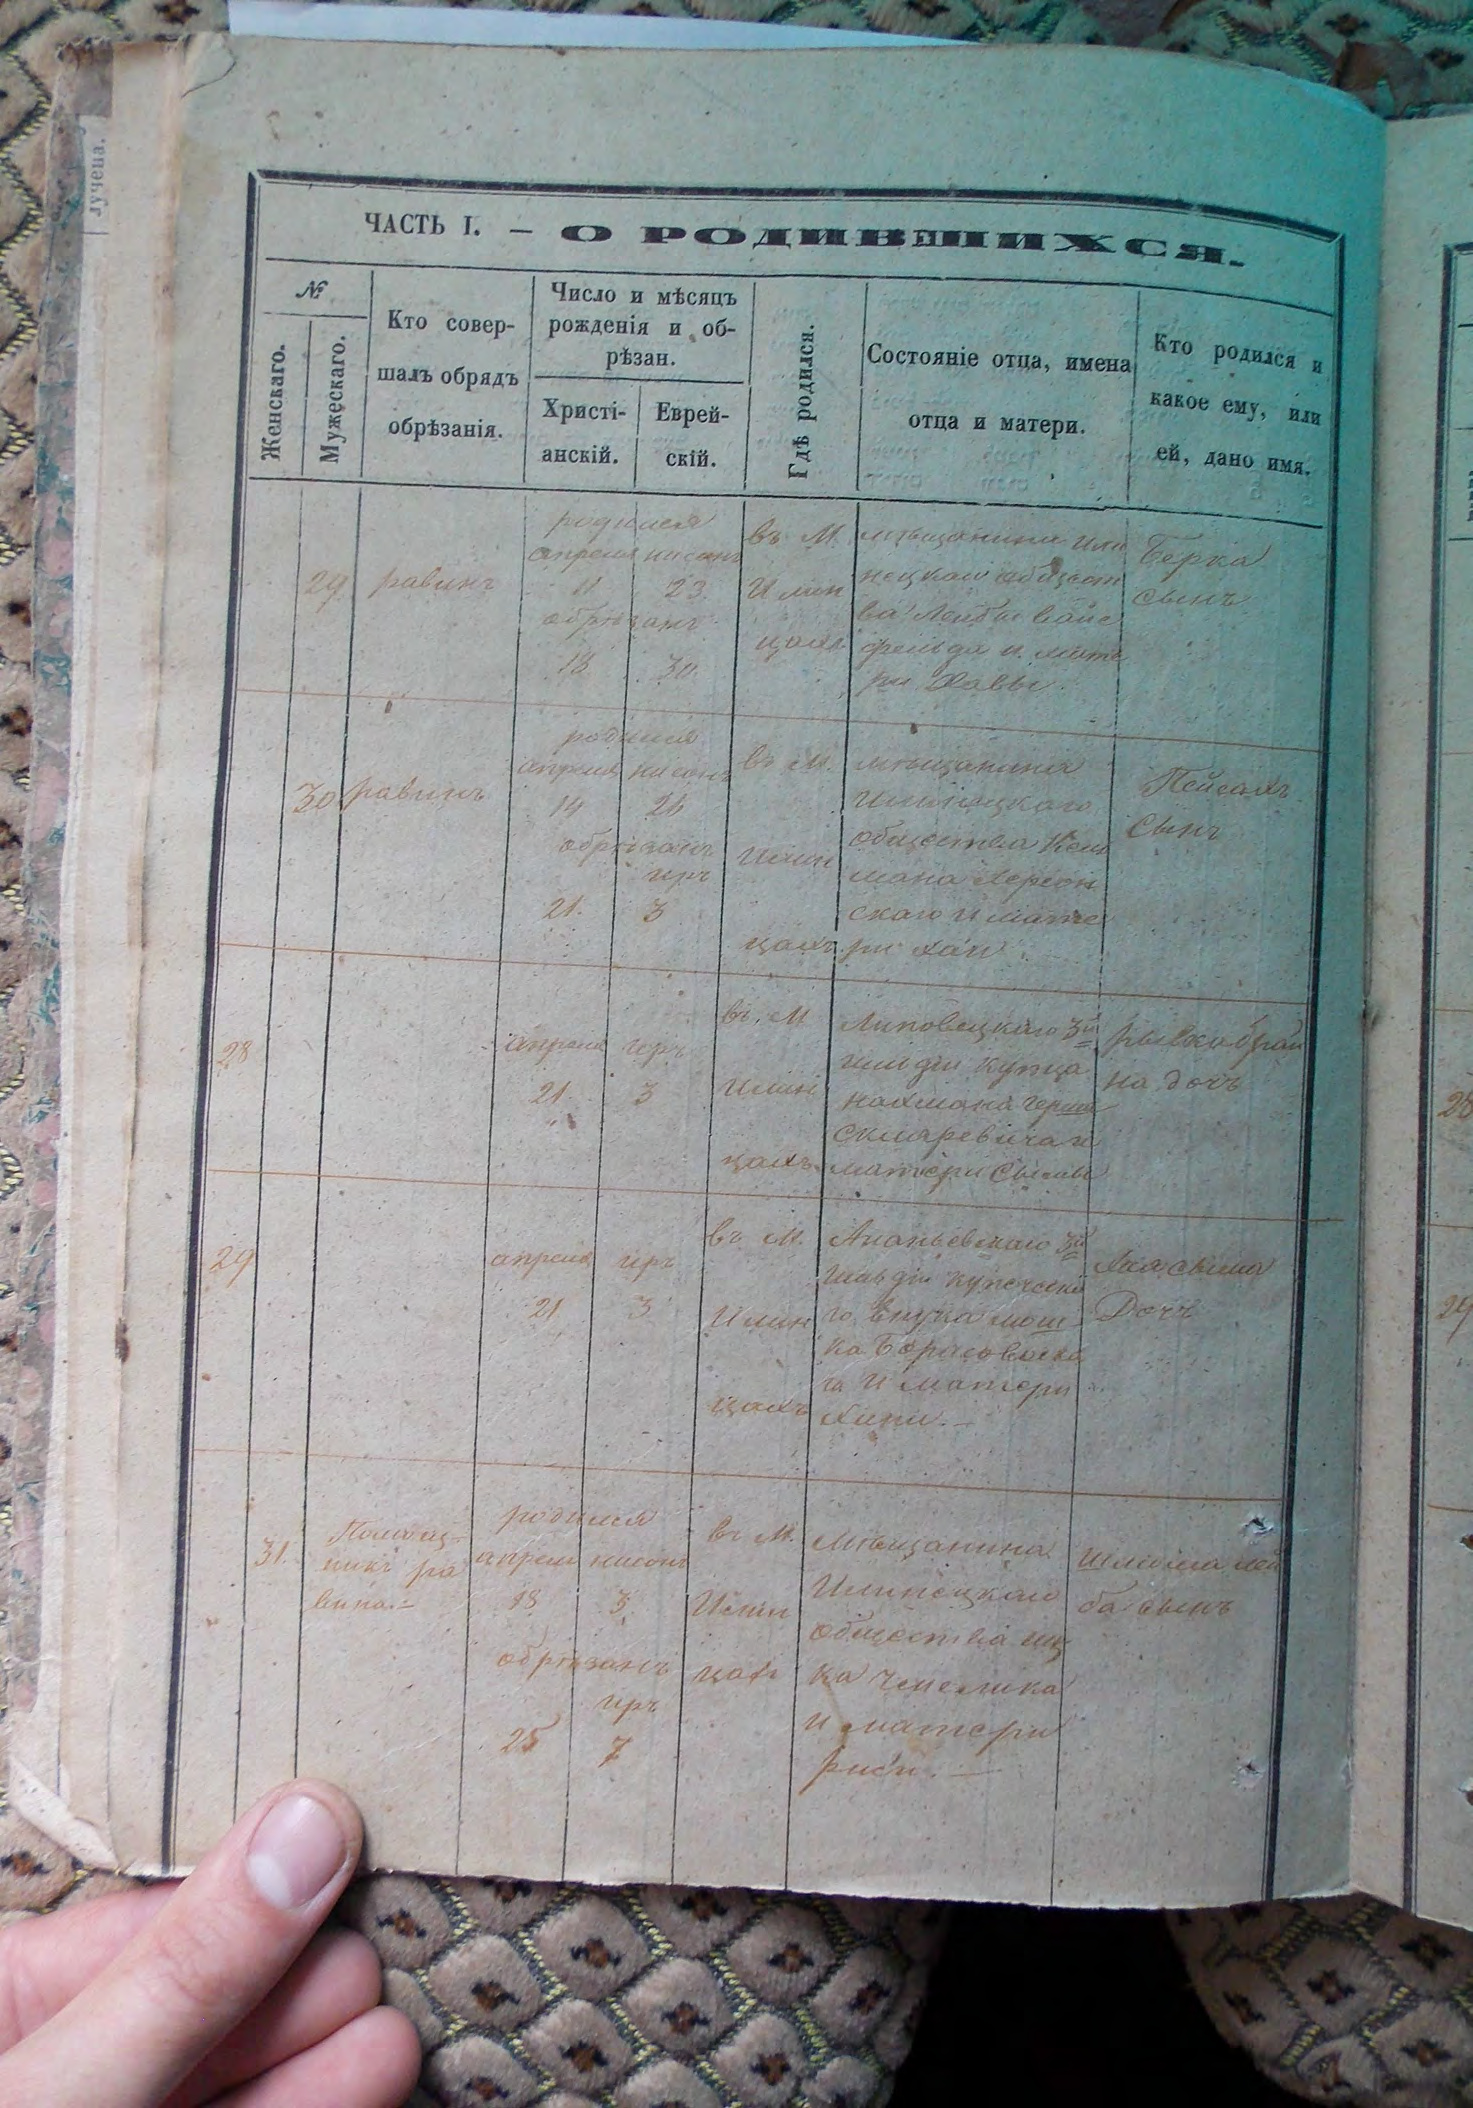 лучена.
ЧАСТЬ I. — О РОДИВШИХСЯ.
№
Женскаго.
Мужескаго.
Кто совер-
шалъ обрядъ
обрѣзанія.
Число и мѣсяцъ
рожденія и об-
рѣзан.
Христі-
анскій.
Еврей-
скій.
Гдѣ родился.
Состояніе отца, имена
отца и матери.
Кто родился и
какое ему, или
ей, дано имя.
29
равинъ
родился
апреля нисонъ
11 23
обрѣзанъ
18 30
въ М.
Илин
цахъ
мѣщанина Или
нецкаго общест
ва Лейбы Вайс
фельда и мате
ри Хавы
Берка
сынъ
30
равинъ
родился
апреля нисонъ
14 26
обрѣзанъ
иръ
21. 3
въ М.
Илин
цахъ
мѣщанина
Илинецкаго
общества Кель
мана Херсон
скаго и мате
ри Хаи
Пейсахъ
сынъ
28
апреля иръ
21 3
въ М
Илин
цахъ
Липовецкаго 3й
гильдіи купца
Нахмана Герша
Скляревича и
матери Сымы
на дочъ
29
апреля иръ
21 3
въ М.
Илин
цахъ
Ананьевскаго 3й
гильдіи купческа
го внука Мош
ка Борисовска
го и матери
Хини. —
Хая сыма
Дочъ
31.
Помощ-
никъ ра
вина. —
родился
апреля нисонъ
18 3
обрѣзанъ
иръ
25 7
въ М.
Илин
цахъ
Мѣщанина
Илинецкаго
общества Иц
ка Чемелика
и матери
Риси. —
Шлиома Лей
ба сынъ
28
29